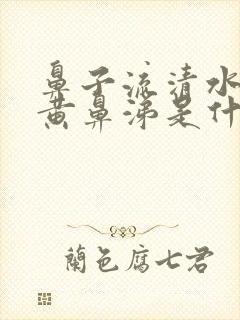 鼻子流清水
黄鼻涕是什
蘭色腐七君